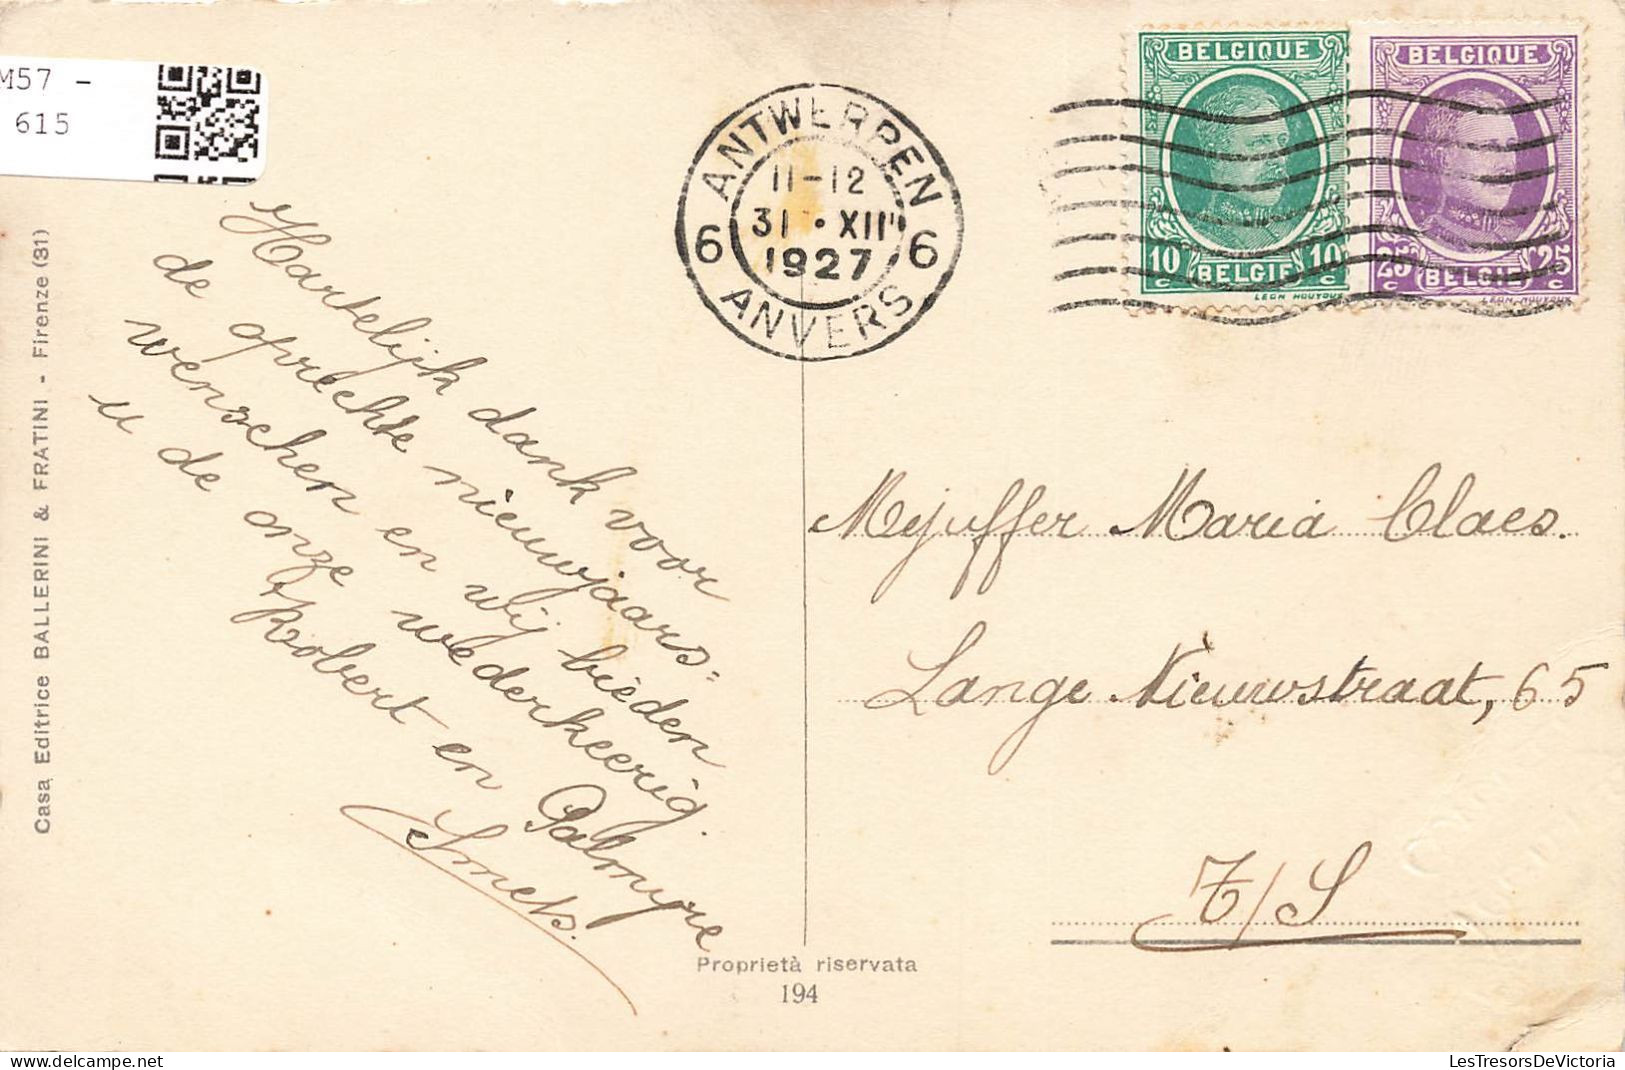 M57 -
615
Casa Editrice BALLERINI & FRATINI - Firenze (31)
Hartelijk dank voor
de oprechte nieuwjaars=
wenschen en wij bieden
u de onze wederkeerig.
Robert en Palmyre
Smets.
ANTWERPEN
11-12
31 • XII
1927
6 6
ANVERS
BELGIQUE
10 10
c c
BELGIE
LEON HOUYOUX
BELGIQUE
25 25
c c
BELGIE
LEON HOUYOUX
Mejuffer Maria Claes.
Lange Nieuwstraat, 65
T/S
Proprietà riservata
194
LesTresorsDeVictoria